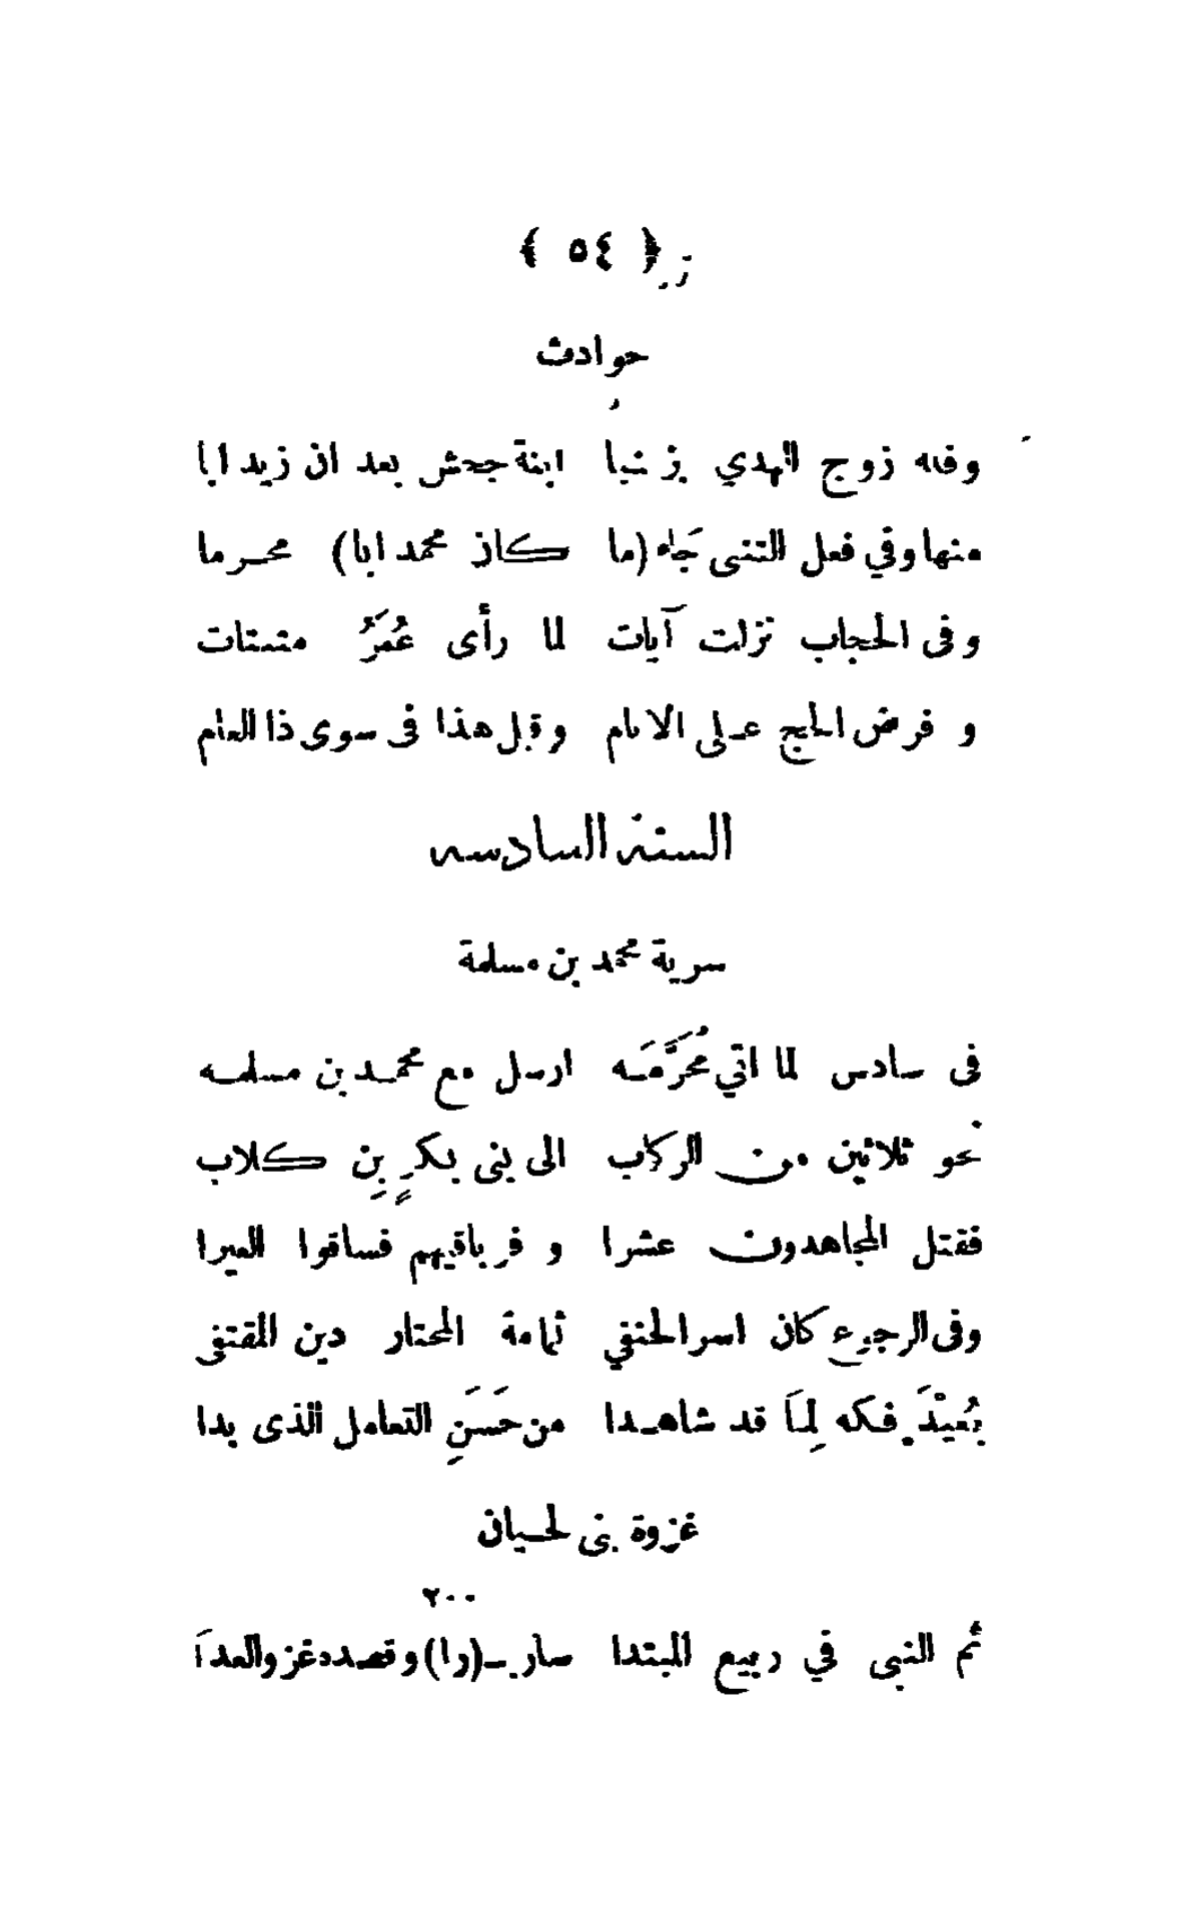 ﴿ ٥٤ ﴾
حوادث
وفيه زوج الهدي زينبا ابنة جحش بعد ان زيد ابا
منها وفي فعل التبنى جَاء (ما كان محمد ابا) محرما
وفى الحجاب نزلت آيات لما رأى عُمَرُ متستات
و فرض الحج على الانام وقبل هذا فى سوى ذا العام
السنة السادسه
سرية محمد بن مسلمة
فى سادس لما اتي مُحَرَّمَه ارسل مع محمد بن مسلمه
نحو ثلاثين من الركاب الى بنى بكرٍ بِنِ كلاب
فقتل المجاهدون عشرا و فر باقيهم فساقوا العيرا
وفى الرجوع كان اسر الحنفي ثمامة المختار دين المقتفى
بُعَيْدَ فكه لِمَا قد شاهدا من حَسَنِ التعامل الذى بدا
غزوة بنى لحيان
٢٠٠
ثم النبى في ربيع المبتدا سار بـ(را) وقصده غزو العدآ